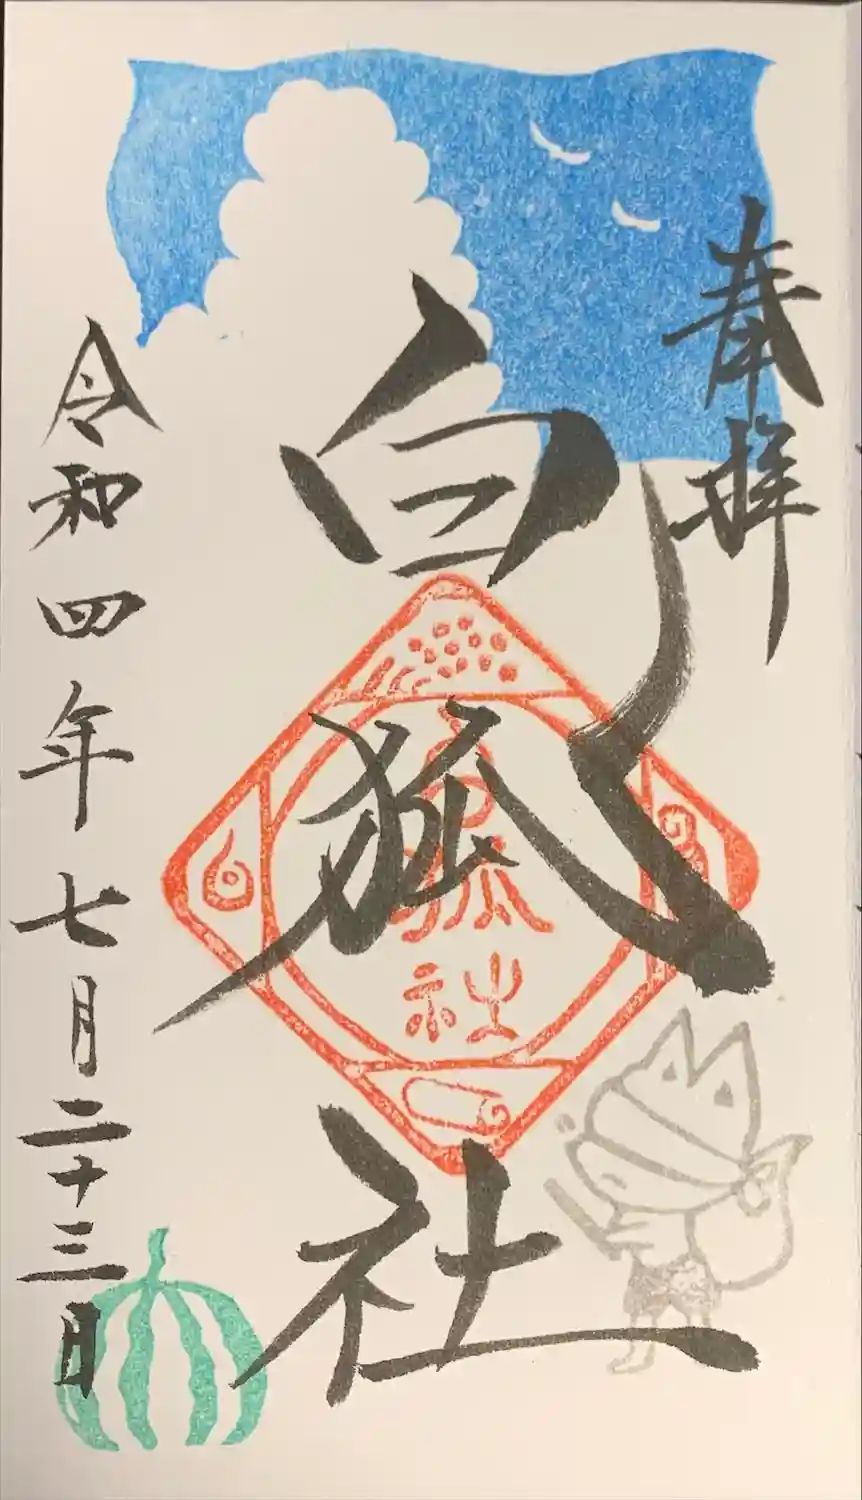 奉拝
白狐社
白狐社
令和四年七月二十三日